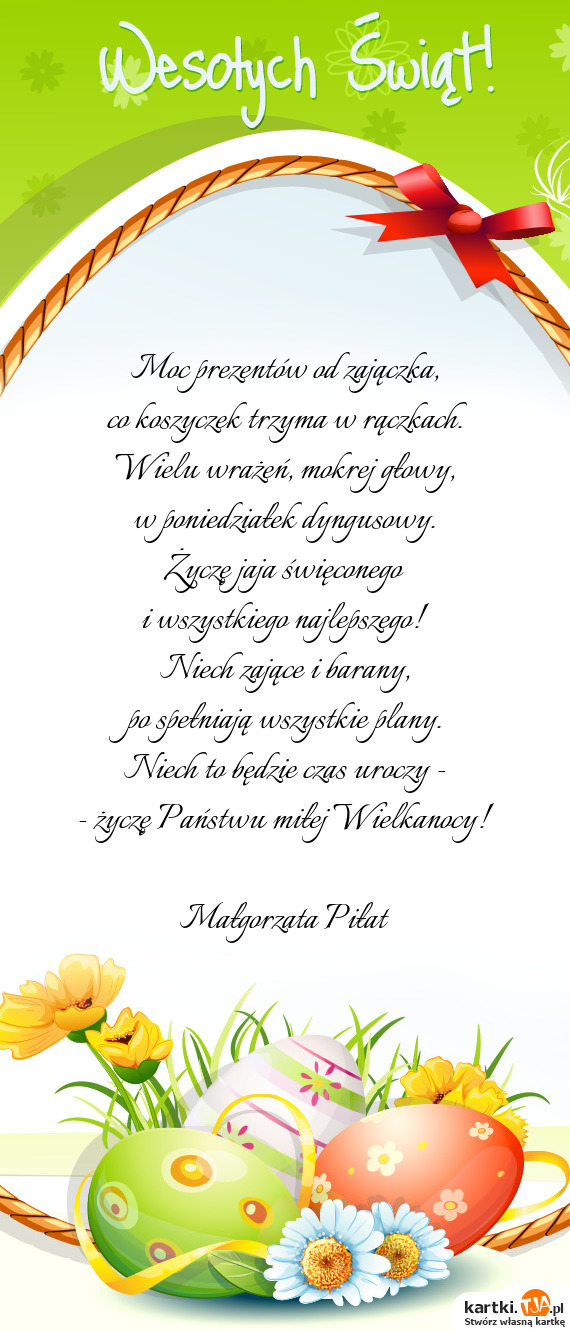 Wesołych Świąt!
Moc prezentów od zajączka,
co koszyczek trzyma w rączkach.
Wielu wrażeń, mokrej głowy,
w poniedziałek dyngusowy.
Życzę jaja święconego
i wszystkiego najlepszego!
Niech zające i barany,
po spełniają wszystkie plany.
Niech to będzie czas uroczy -
- życzę Państwu miłej Wielkanocy!
Małgorzata Piłat
kartki.TJA.pl
Stwórz własną kartkę